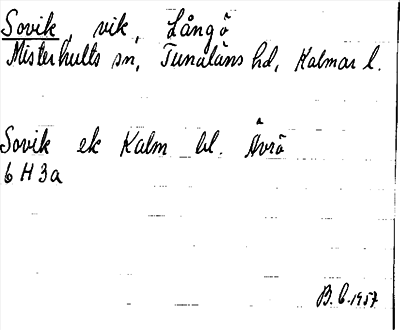 Sovik, vik, Långö
Misterhults sn, Tunaläns hd, Kalmar l.
Sovik ek Kalm bl. Ävrö
6 H 3a
B.C. 1957